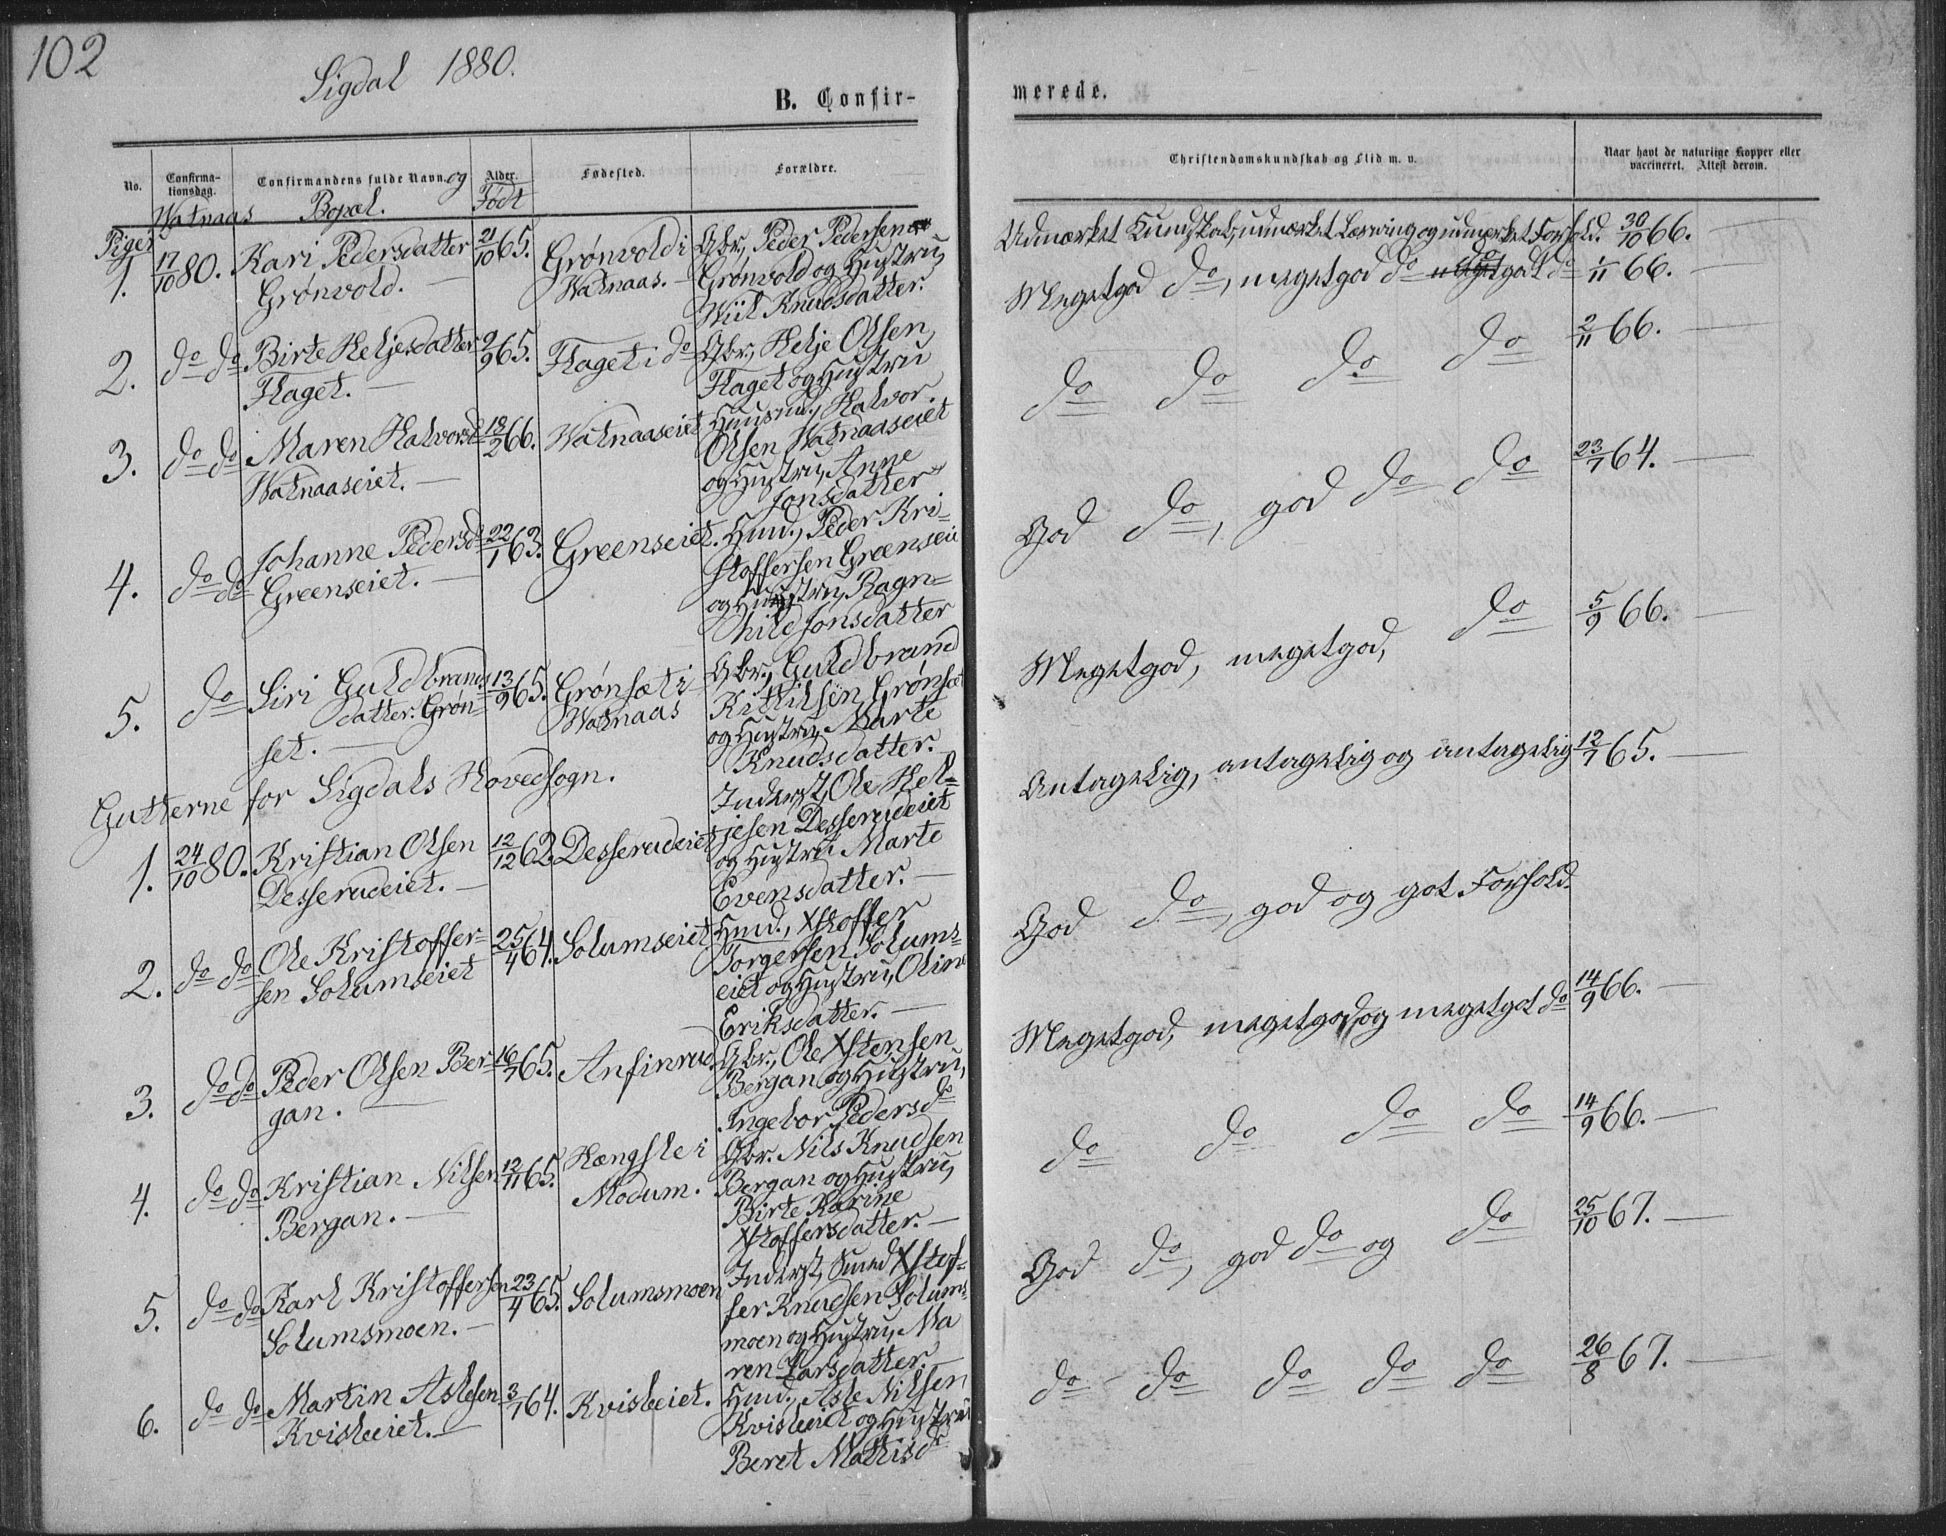 102
Sigdal 1880.
B. Confir-
No.
Confirma-
tionsdag.
Confirmandens fulde Navn. og
Bopæl.
Alder.
Født
Fødested.
Forældre.
Watnaas
Piger
1. 17/10 80. Kari Pedersdatter 21/10 65. Grønvold i Gbr., Peder Pedersen
Grønvold. — Watnaas. — Grønvold og Hustru,
Wiil Knudsdatter.
2. do do Birte Heljesdatter 2/9 65. Flaget i do Gbr., Helje Olsen
Flaget. — Flaget og Hustru
3. do do Maren Halvorsd 18/2 66. Watnaaseiet Husmd., Halvor
Watnaaseiet. — Olsen Watnaaseiet
og Hustru, Anne
Jonsdatter
4. do do Johanne Pedersd 22/1 63. Greenseiet. Husmd., Peder Kri-
Greenseiet. — stoffersen Greensei
og Hustru, Ragn-
hild Jonsdatter
5. do Siri Guldbrands 13/9 65. Grønsæt i Gbr., Guldbrand
datter. Grøn- Watnaas Kittilsen Grønsæt
set. — og Hustru, Marte
Knudsdatter.
Gutterne for Sigdals Hovedsogn.
1. 24/10 80. Kristian Olsen 12/12 62. Desserudeiet Inderst, Ole Hel-
Desserudeiet. — jesen Desserudeiet
og Hustru Marte
Evensdatter. —
2. do do Ole Kristoffer- 25/4 64. Solumseiet Husmd., Xstoffer
sen Solumseiet Torgersen Solums-
eiet og Hustru, Oline
Eriksdatter. —
3. do do Peder Olsen Ber- 16/7 65. Anfinrud. Gbr., Ole Xstensen
gan. — Bergan og Hustru,
Ingebor Pedersd
4. do do Kristian Nilsen 12/11 65. Hængsle i Gbr. Nils Knudsen
Bergan. — Modum. Bergan og Hustru,
Birte Karine
Xstoffersdatter. —
5. do do Karl Kristoffersen 23/4 65. Solumsmoen Inderst, Smed Xstof-
Solumsmoen. — fer Knudsen Solums-
moen og Hustru, Ma
ren Larsdatter. —
6. do do Martin Aslesen 3/7 64. Kvisleiet. Husmd., Asle Nilsen
Kvisleiet. — Kvisleiet og Hustru
Beret Mathisd
merede.
Christendomskundskab og Flid m. v.
Naar havt de naturlige Kopper eller
vaccineret. Attest derom.
Udmærket Kundskab, udmærket Læsning og udmærket Forhold. 30/10 66. —
Megetgod do, megetgod do god do 1/11 66. —
do do do do 2/11 66. —
God do, god do do 23/7 64. —
Megetgod, megetgod, do 5/9 66. —
Antagelig, antagelig og antagelig 12/7 65. —
God do, god og got Forhold.
Megetgod, megetgod, og megetgot do 14/9 66. —
do do do do 14/9 66. —
God do, god do og do 25/10 67. —
do do do do do 26/8 67. —